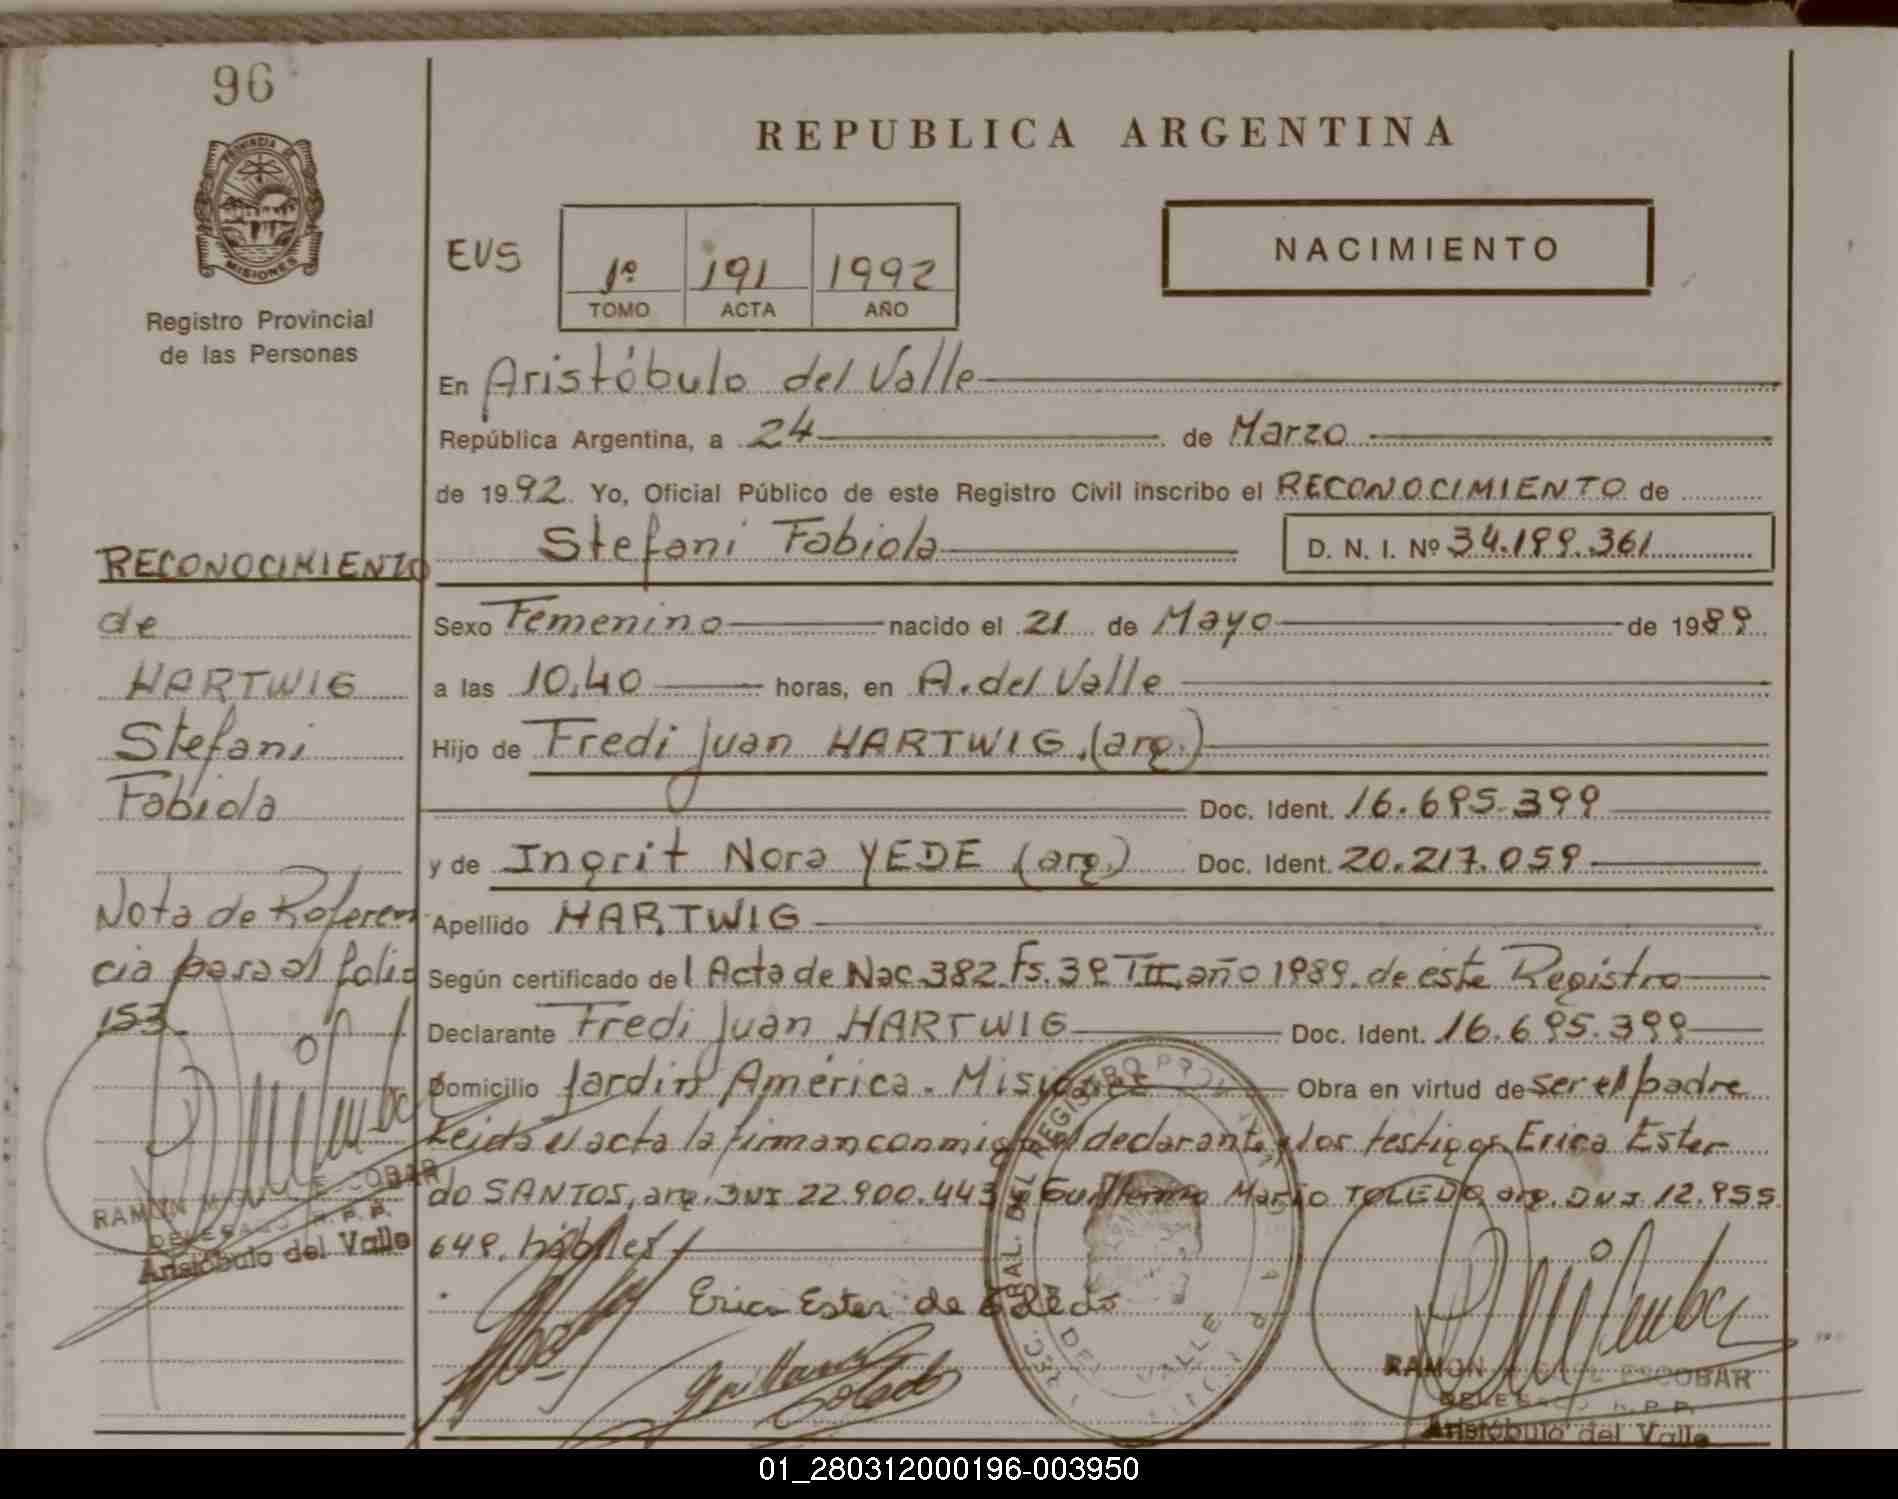 96
PROVINCIA DE
MISIONES
Registro Provincial
de las Personas
REPUBLICA ARGENTINA
EVS
1º 191 1992
TOMO ACTA AÑO
NACIMIENTO
En Aristóbulo del Valle
República Argentina, a 24 de Marzo
de 1992. Yo, Oficial Público de este Registro Civil inscribo el RECONOCIMIENTO de
Stefani Fabiola D. N. I. Nº 34.199.361
Sexo Femenino nacido el 21 de Mayo de 1989
a las 10,40 horas, en A. del Valle
Hijo de Fredi Juan HARTWIG. (arg.)
Doc. Ident. 16.695.399
y de Ingrit Nora YEDE (arg.) Doc. Ident. 20.217.059
Apellido HARTWIG
Según certificado del Acta de Nac 382 Fs. 39 TII año 1989. de este Registro
Declarante Fredi Juan HARTWIG Doc. Ident. 16.695.399
Domicilio Jardín América - Misiones Obra en virtud de ser el padre
Leida el acta la firman conmigo el declarante y los testigos Erica Ester
do SANTOS, arg. DNI 22.900.443 y Guillermo Mario TOLEDO arg. DNI 12.955
649. hábiles
Erica Ester de Toledo
Guillermo Toledo
RAMON MIGUEL ESCOBAR
DELEGADO R.P.P.
Aristóbulo del Valle
RECONOCIMIENTO
de
HARTWIG
Stefani
Fabiola
Nota de Referen
cia para el folio
153.
RAMON MIGUEL ESCOBAR
DELEGADO R.P.P.
Aristóbulo del Valle
GRAL. DEL REGISTRO
DEL VALLE
01_280312000196-003950